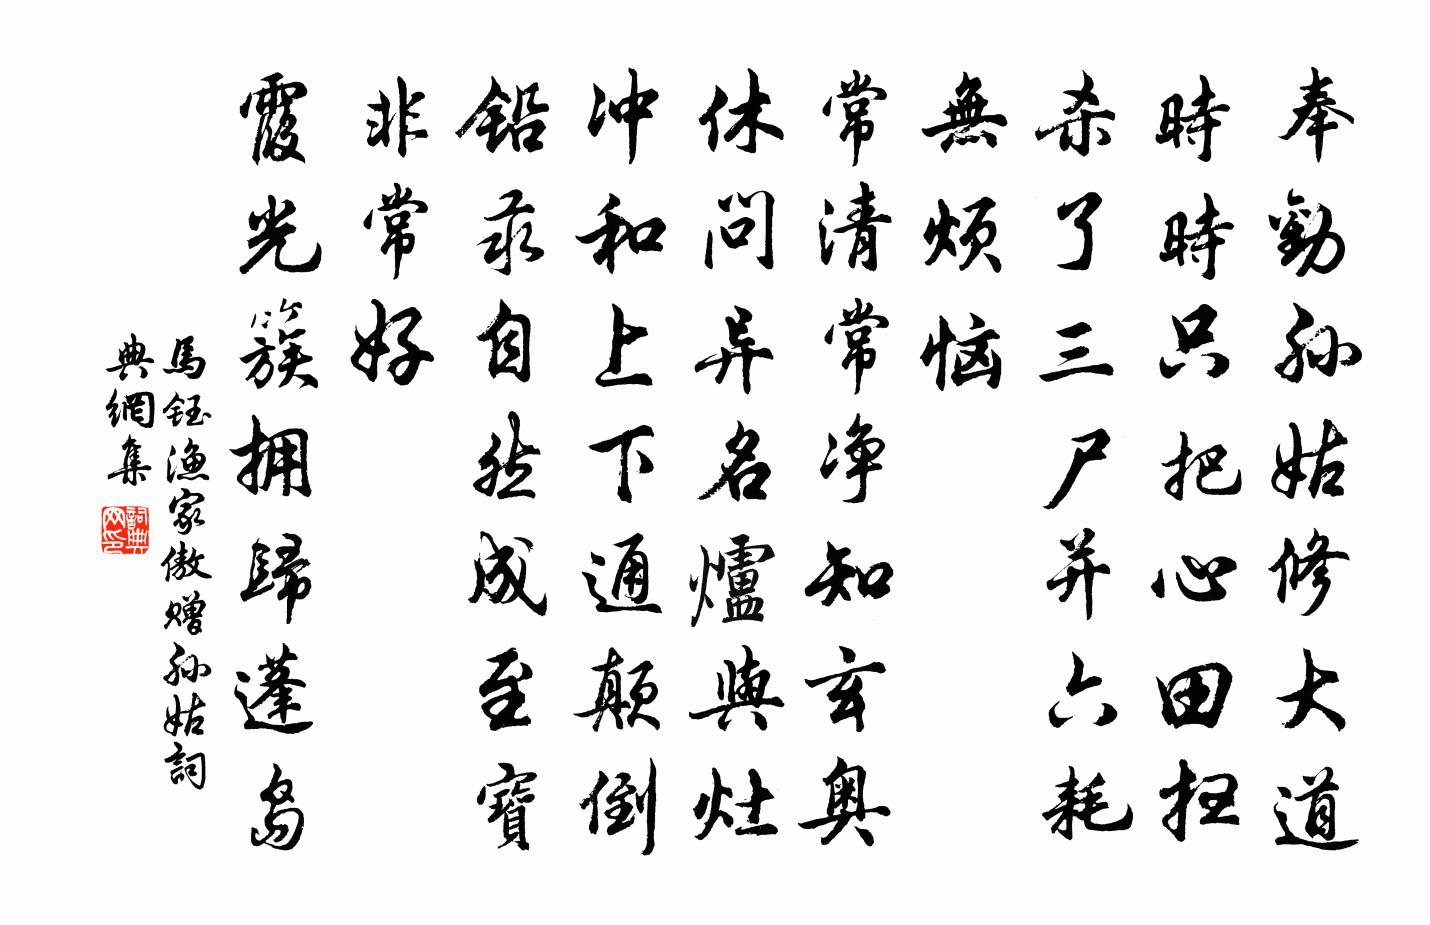 奉勸孙姑修大道
時時只把心田扫
杀了三尸并六耗
無烦恼
常清常净知玄奥
休问异名爐與灶
冲和上下通颠倒
铅汞自然成至寶
非常好
霞光簇拥歸蓬岛
馬钰渔家傲赠孙姑詞
典網集
詞典网印